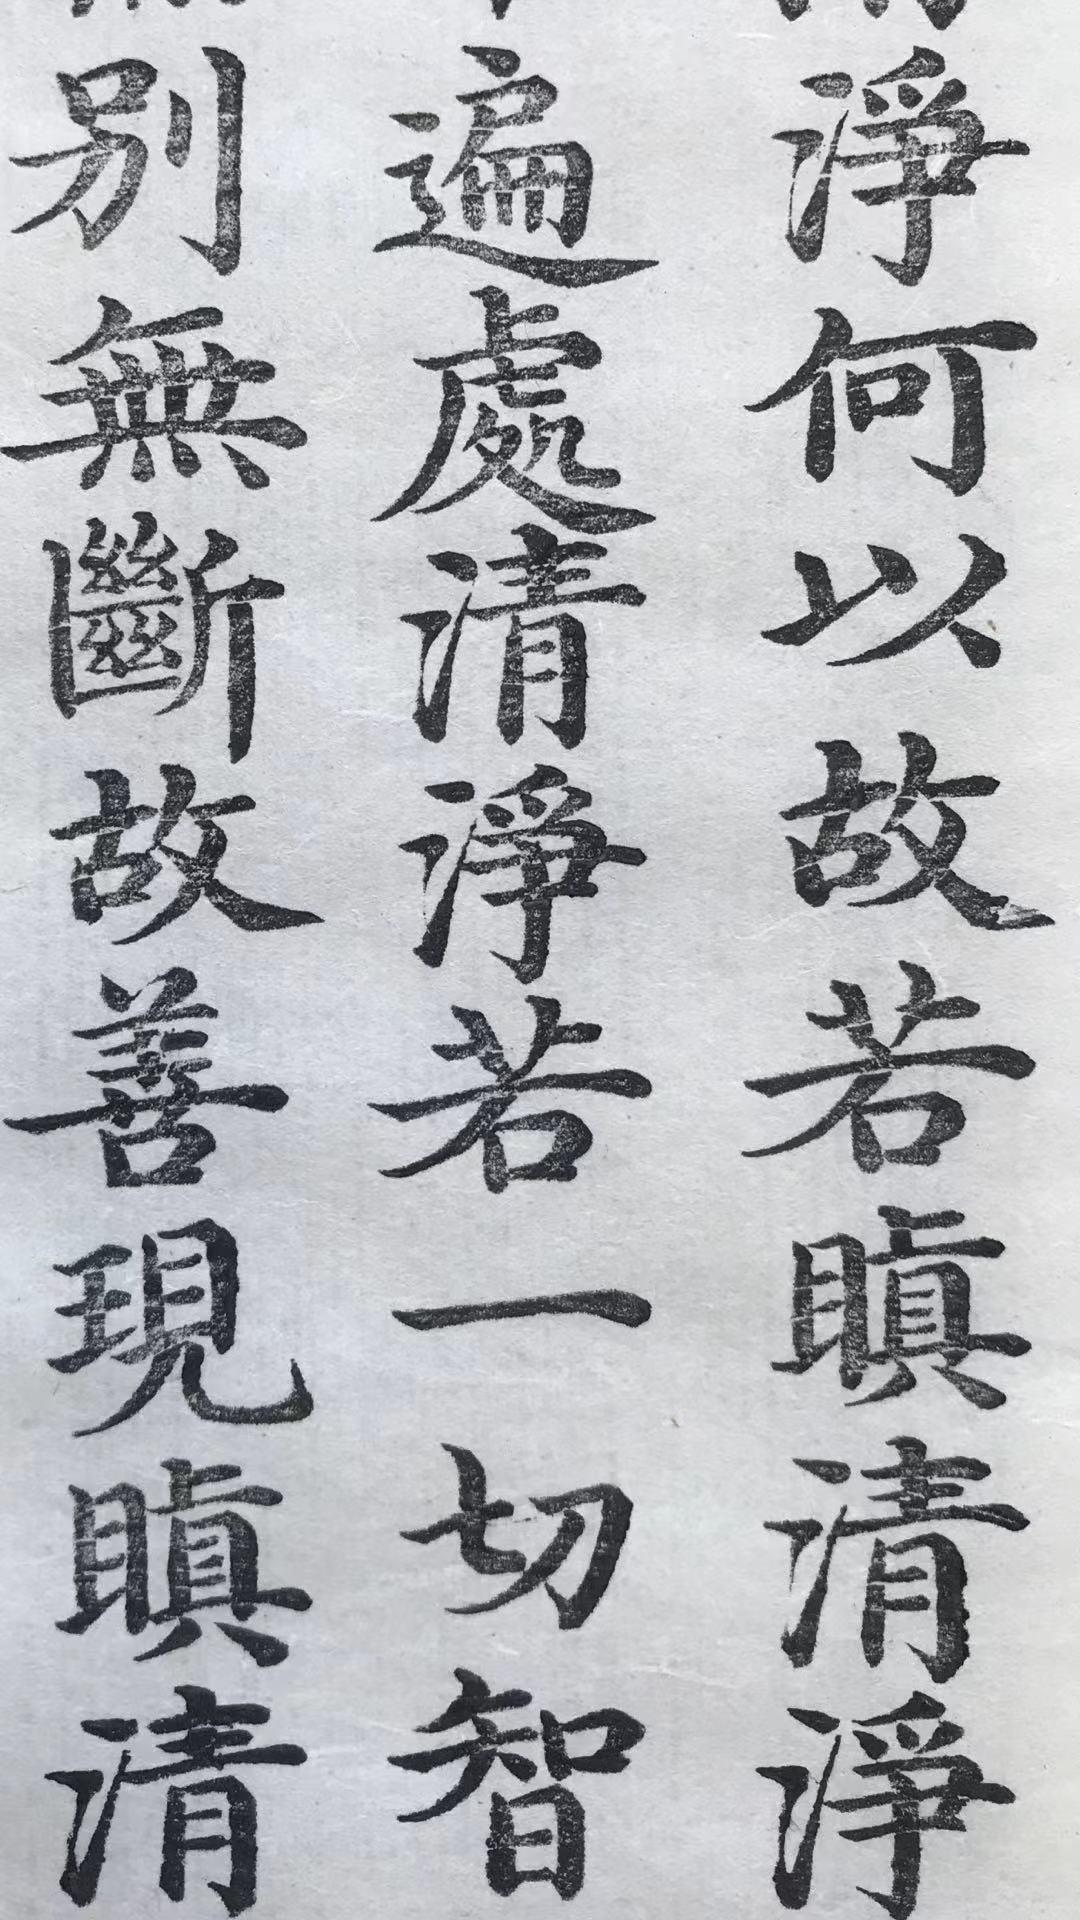 淨何以故若瞋清淨
遍處清淨若一切智
別無斷故善現瞋清